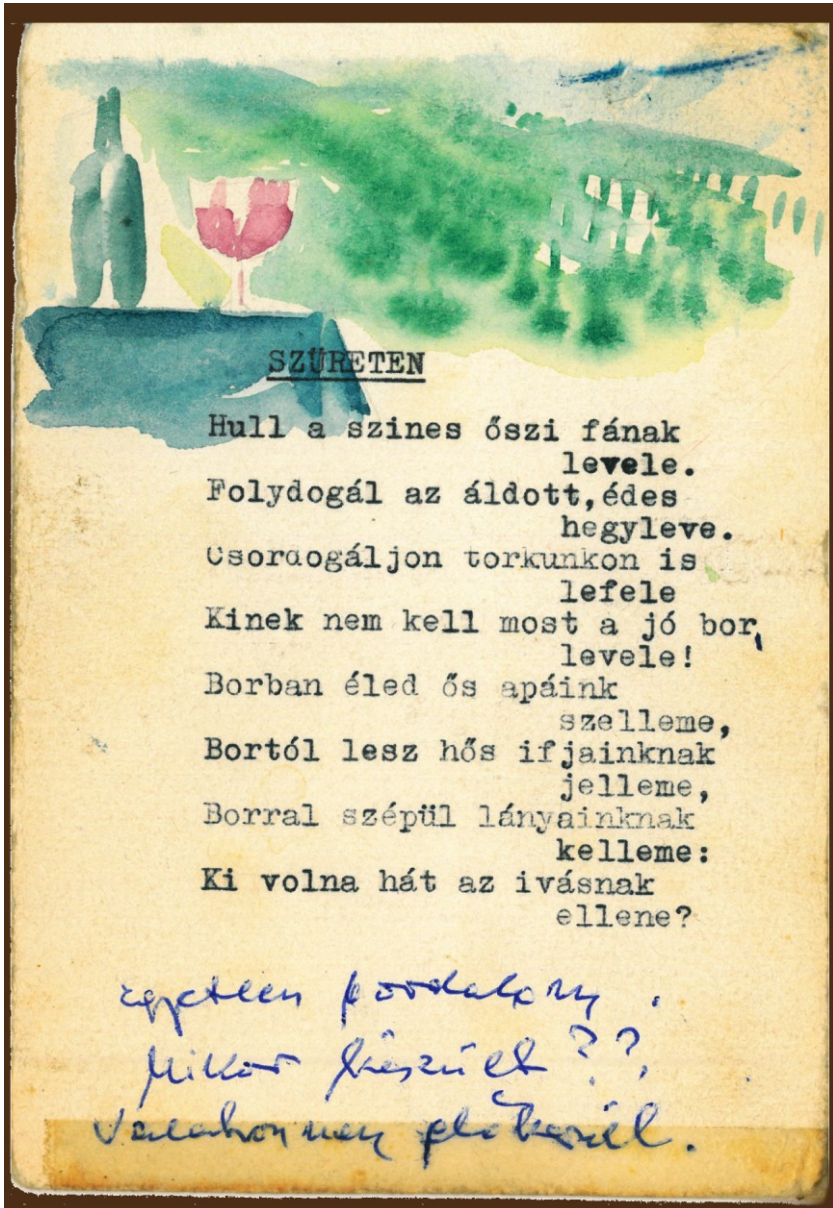 SZÜRETEN
Hull a szines őszi fának
levele.
Folydogál az áldott,édes
hegyleve.
Csordogáljon torkunkon is
lefele
Kinek nem kell most a jó bor,
levele!
Borban éled ős apáink
szelleme,
Bortól lesz hős ifjainknak
jelleme,
Borral szépül lányainknak
kelleme:
Ki volna hát az ivásnak
ellene?
egyetlen .
Mikor készült??
Valahonnan előkerül.